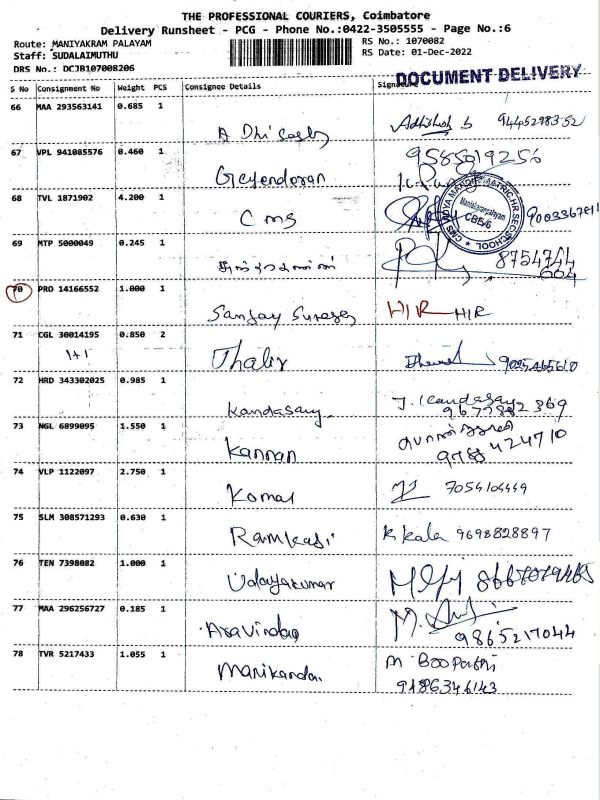 THE PROFESSIONAL COURIERS, Coimbatore
Delivery Runsheet - PCG - Phone No.:0422-3505555 - Page No.:6
Route: MANIYAKRAM PALAYAM RS No.: 1070082
Staff: SUDALAIMUTHU RS Date: 01-Dec-2022
DRS No.: DCJB107008206
DOCUMENT DELIVERY
S No Consignment No Weight PCS Consignee Details Signature
66 MAA 293563141 0.685 1
9445298352
67 VPL 941085576 0.460 1
9585919256
Gejendoran
68 TVL 1871902 4.200 1
CMS
69 MTP 5000049 0.245 1
8754744
604
70 PRO 14166552 1.000 1
Sanjay Suresh HIR HIR
71 CGL 30014195 0.850 2
1+1 Thalir
72 HRD 343302025 0.985 1
Kandasamy J. Kandasamy
9677882369
73 NGL 6899095 1.550 1
Kannan
74 VLP 1122097 2.750 1
Komal
75 SLM 308571293 0.630 1
Ramkasi K Kala 9698828897
76 TEN 7398082 1.000 1
Udayakumar
77 MAA 296256727 0.185 1
Aravindan
9865217044
78 TVR 5217433 1.055 1
Manikandan M Boopathi